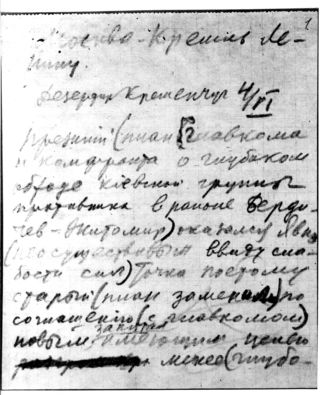 1
Москва-Кремль Ле-
нину.
Кременчуг 4/VI
Прежний (план главкома
и командюгза о глубоком
обходе киевской группы
противника в районе Берди-
чев-Житомир) оказался явно
(неосуществимым ввиду сла-
бости сил) точка поэтому
старый (план заменен по
соглашению (с главкомом)
новым имеющим целью
менее (глубо-